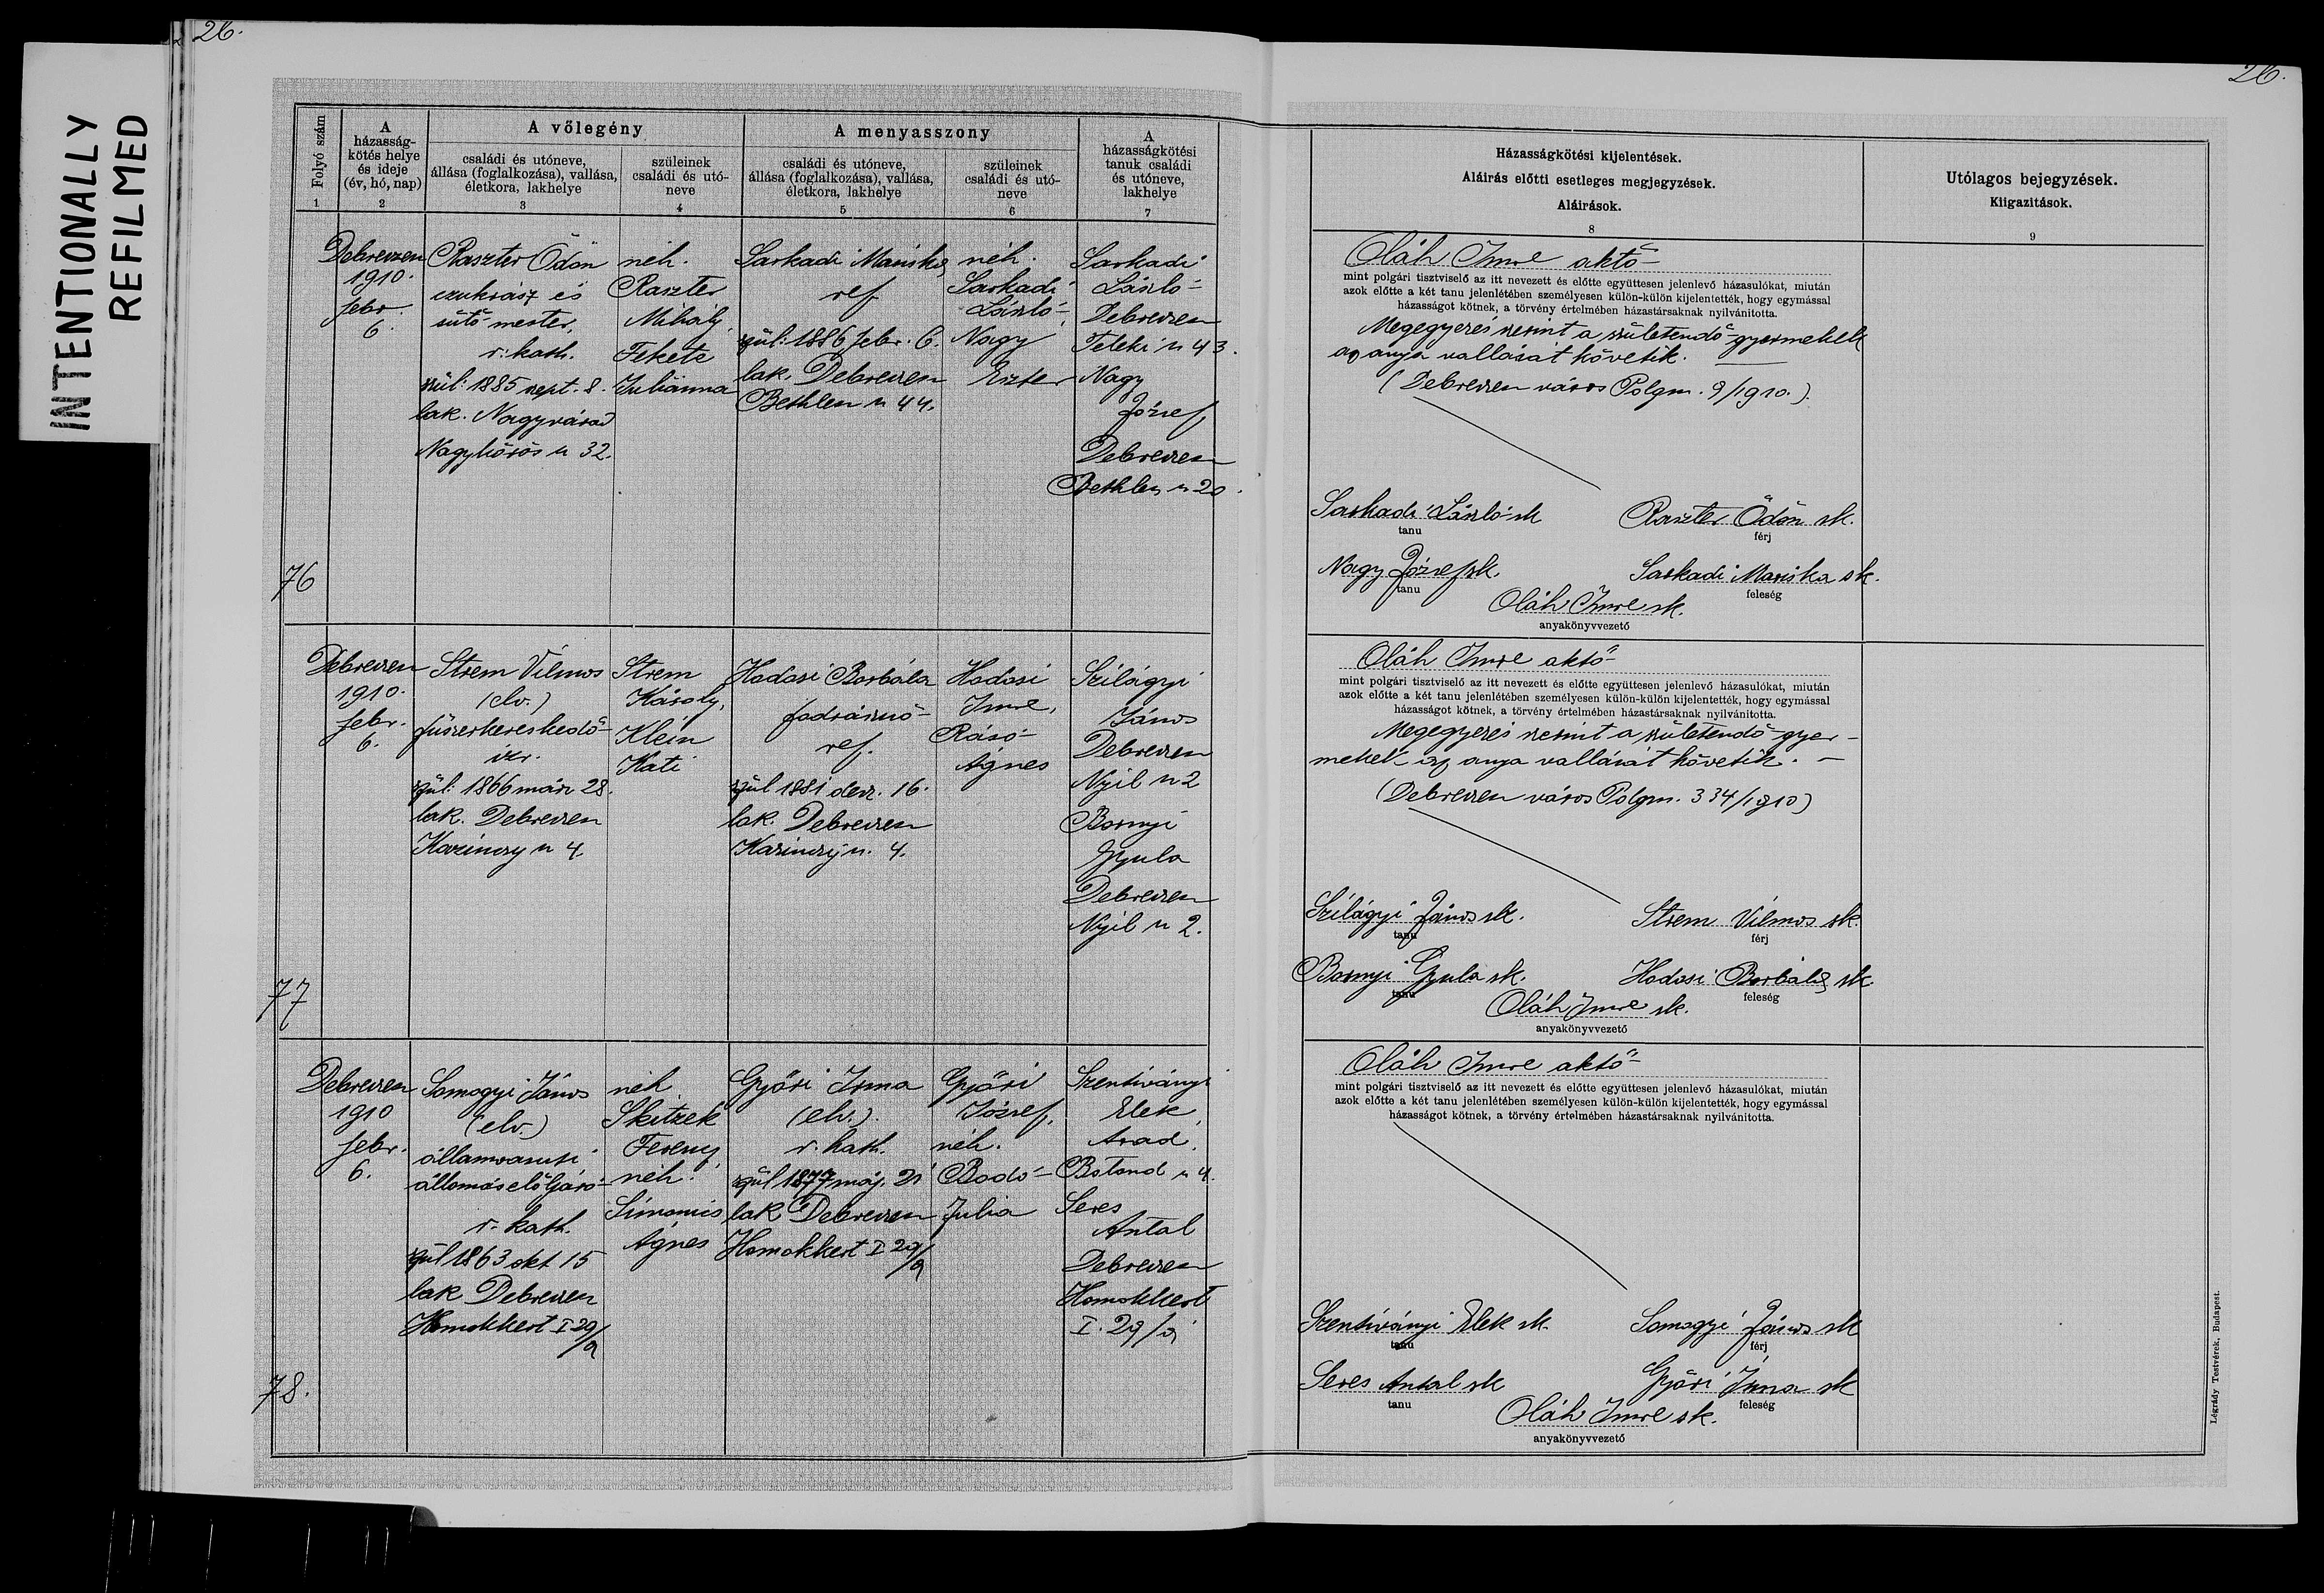 26.
26.
INTENTIONALLY
REFILMED
Folyó szám
1
A
házasság-
kötés helye
és ideje
(év, hó, nap)
2
A vőlegény
családi és utóneve,
állása (foglalkozása), vallása,
életkora, lakhelye
3
szüleinek
családi és utó-
neve
4
A menyasszony
családi és utóneve,
állása (foglalkozása), vallása,
életkora, lakhelye
5
szüleinek
családi és utó-
neve
6
A
házasságkötési
tanuk családi
és utóneve,
lakhelye
7
Házasságkötési kijelentések.
Aláirás előtti esetleges megjegyzések.
Aláirások.
8
Utólagos bejegyzések.
Kiigazitások.
9
76
Debreczen
1910.
febr.
6.
Raszter Ödön
czukrász és
sütő mester,
r. kath.
szül: 1885 szept. 8.
lak. Nagyvárad
Nagykőrös u 32.
néh.
Raszter
Mihály,
Fekete
Juliánna
Sarkadi Mariska
ref
szül: 1886 febr. 6.
lak. Debreczen
Bethlen u 44.
néh.
Sarkadi
László,
Nagy
Eszter
Sarkadi
László
Debreczen
Teleki u 43.
Nagy
József,
Debreczen
Bethlen u 20.
Oláh Imre aktő
mint polgári tisztviselő az itt nevezett és előtte együttesen jelenlevő házasulókat, miután
azok előtte a két tanu jelenlétében személyesen külön-külön kijelentették, hogy egymással
házasságot kötnek, a törvény értelmében házastársaknak nyilvánitotta.
Megegyezés szerint a születendő gyermekek
az anya vallását követik.
(Debreczen város Polgm. 9/1910.).
Sarkadi László sk
tanu
Raszter Ödön sk.
férj
Nagy József sk.
tanu
Sarkadi Mariska sk.
feleség
Oláh Imre sk.
anyakönyvvezető
77
Debreczen
1910.
febr.
6.
Strem Vilmos
(elv.)
fűszerkereskedő
izr.
szül: 1866 márc 28.
lak. Debreczen
Kazinczy u 4.
Strem
Károly,
Klein
Kati
Hadasi Borbála
fodrásznő
ref.
szül 1881 decz. 16.
lak. Debreczen
Kazinczy u. 4.
Hadasi
Imre,
Rásó
Ágnes
Szilágyi
János
Debreczen
Nyil u 2
Bornyi
Gyula
Debreczen
Nyil u 2.
Oláh Imre aktő
mint polgári tisztviselő az itt nevezett és előtte együttesen jelenlevő házasulókat, miután
azok előtte a két tanu jelenlétében személyesen külön-külön kijelentették, hogy egymással
házasságot kötnek, a törvény értelmében házastársaknak nyilvánitotta.
Megegyezés szerint a születendő gyer-
mekek az anya vallását követik.
(Debreczen város Polgm. 334/1910)
Szilágyi János sk.
tanu
Strem Vilmos sk.
férj
Bornyi Gyula sk.
tanu
Hadasi Borbála sk.
feleség
Oláh Imre sk.
anyakönyvvezető
78.
Debreczen
1910
febr.
6.
Somogyi János
(elv.)
államvasuti
állomáselőljáró
r. kath.
szül 1863 okt 15
lak Debreczen
Homokkert I 29/a
néh
Skitzek
Ferencz
néh.
Simonics
Ágnes
Győri Irma
(elv.)
r. kath.
szül 1877 máj. 21
lak Debreczen
Homokkert I 29/a
Győri
József,
néh.
Bodó
Julia
Szentiványi
Elek
Arad
Botond u 4.
Seres
Antal
Debreczen
Homokkert
I. 29/a
Oláh Imre aktő
mint polgári tisztviselő az itt nevezett és előtte együttesen jelenlevő házasulókat, miután
azok előtte a két tanu jelenlétében személyesen külön-külön kijelentették, hogy egymással
házasságot kötnek, a törvény értelmében házastársaknak nyilvánitotta.
Szentiványi Elek sk.
tanu
Somogyi János sk
férj
Seres Antal sk
tanu
Győri Irma sk
feleség
Oláh Imre sk.
anyakönyvvezető
Légrády Testvérek, Budapest.